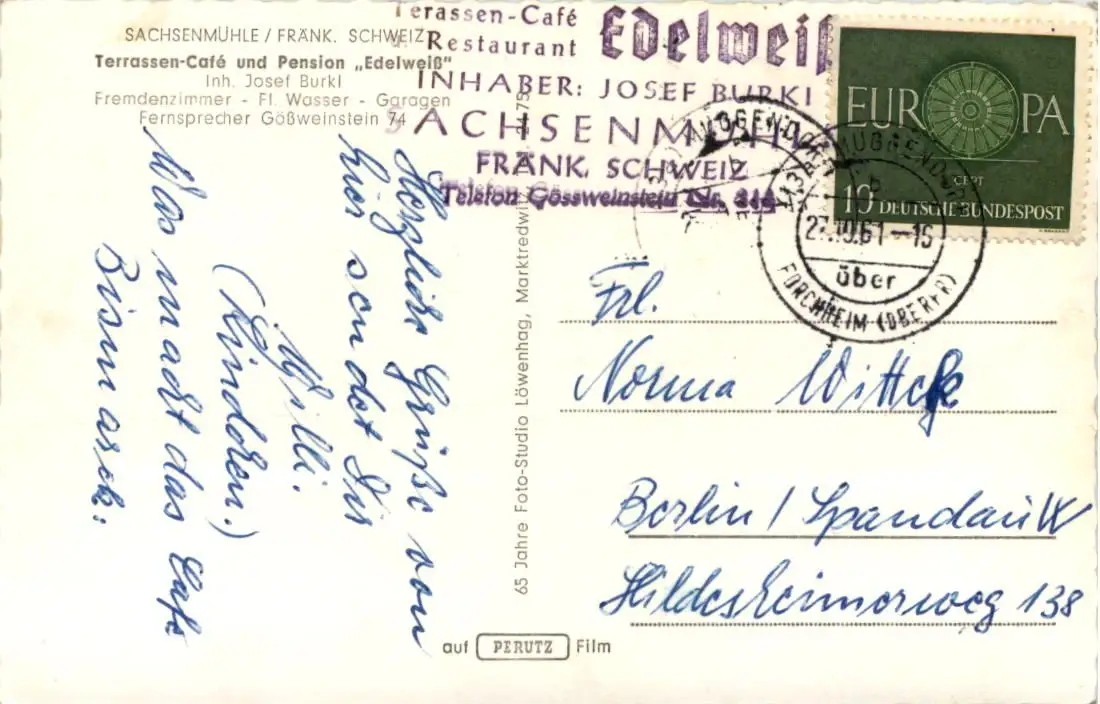 SACHSENMÜHLE / FRÄNK. SCHWEIZ
Terrassen-Café und Pension „Edelweiß“
Inh. Josef Burkl
Fremdenzimmer - Fl. Wasser - Garagen
Fernsprecher Gößweinstein 74
Terassen-Café
Restaurant
Edelweiß
INHABER: JOSEF BURKL
SACHSENMÜHLE
FRÄNK. SCHWEIZ
Telefon Gössweinstein Nr.
EUROPA
CEPT
10 DEUTSCHE BUNDESPOST
MUGGENDORF
27.10.61-15
über
FORCHHEIM (OBERFR)
Herzliche Grüße von
hier sendet Dir
Willi.
(Kindchen.)
Was macht das Cafe
Bismarck:
65 Jahre Foto-Studio Löwenhag, Marktredwitz
auf PERUTZ Film
Frl.
Norma Witteck
Berlin / Spandau W
Hildesheimerweg 138